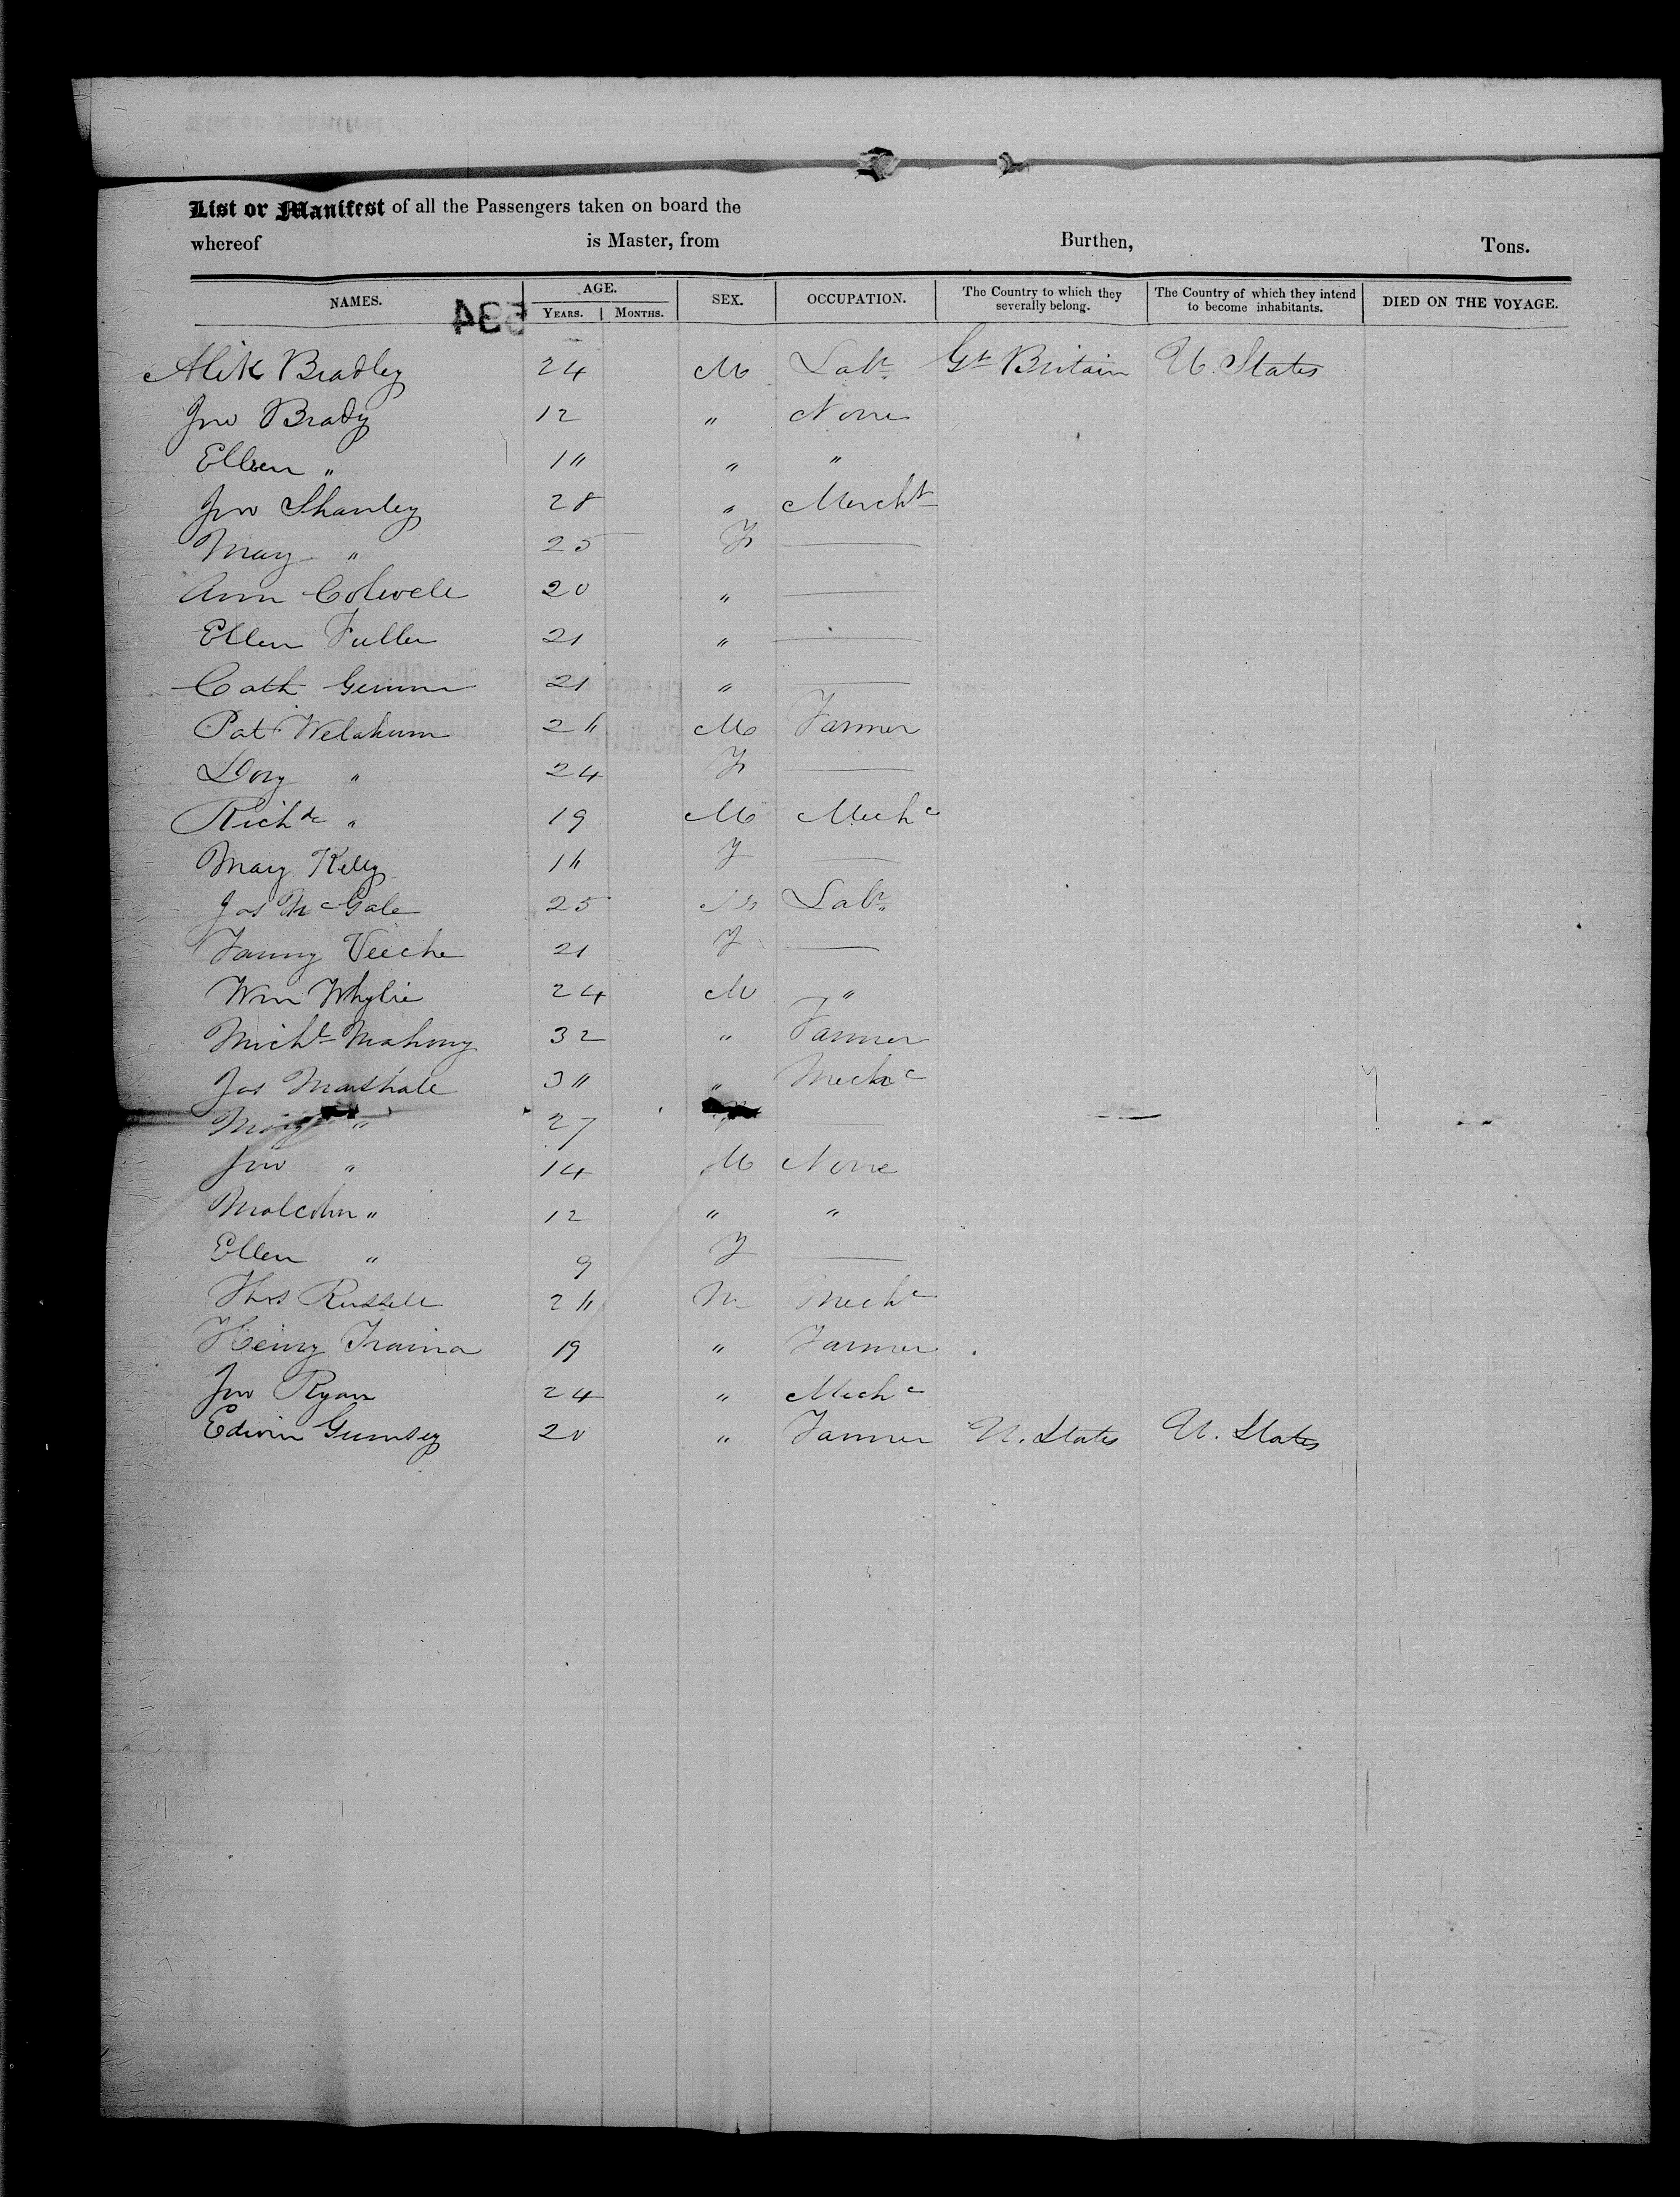 List or Manifest of all the Passengers taken on board the
whereof is Master, from Burthen, Tons.
NAMES. AGE. SEX. OCCUPATION. The Country to which they severally belong. The Country of which they intend to become inhabitants. DIED ON THE VOYAGE.
YEARS. MONTHS.
Alik Bradley 24 M Labr Gt Britain U. States
Jno Brady 12 " None
Ellen " 11 " "
Jno Shanley 28 " Mercht
Mary " 25 F —
Ann Colwell 20 " —
Ellen Fuller 21 " —
Cath 21 " —
Pat 26 M Farmer
24 F —
Richd " 19 M Mechc
Mary Kelly 16 F —
Jas McGale 25 M Labr
Fanny Veeche 21 F —
Wm Whylie 24 M "
Michl Mahony 32 " Farmer
Jas Marshall 36 " Mechc
" 27 —
Jno " 14 M None
Malcolm " 12 " "
Ellen " 9 F —
Thos Russell 26 M Mechc
Henry Traina 19 " Farmer
Jno Ryan 24 " Mechc
Edwin Gurnsey 20 " Farmer U. States U. States